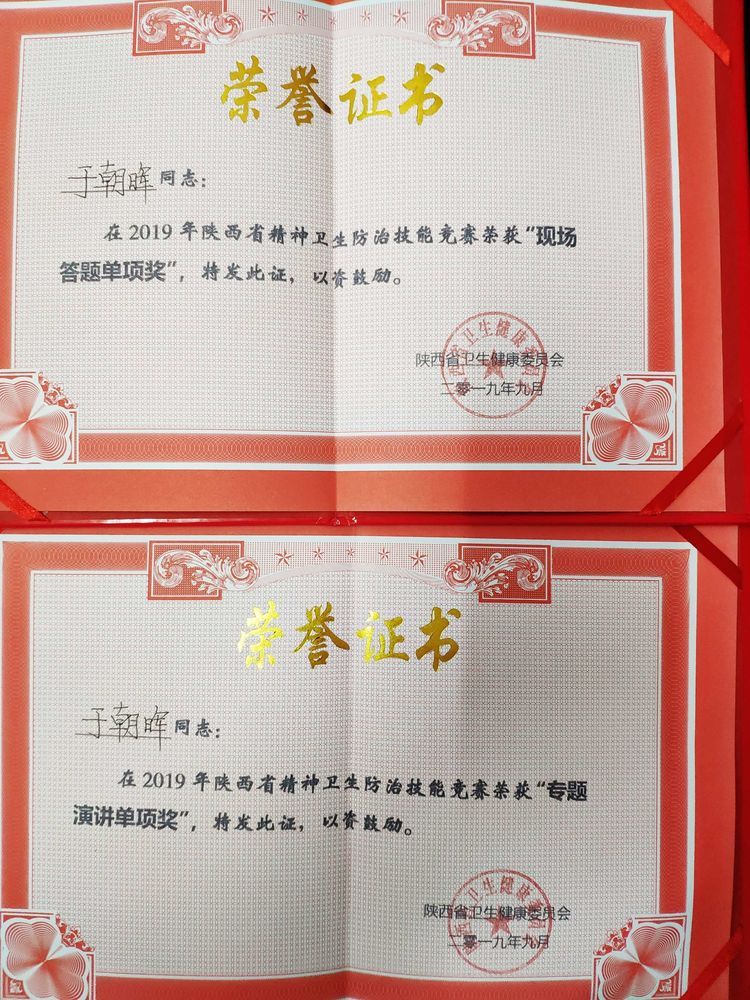 荣誉证书
于朝晖同志：
在2019年陕西省精神卫生防治技能竞赛荣获“现场
答题单项奖”，特发此证，以资鼓励。
陕西省卫生健康委员会
二零一九年九月
荣誉证书
于朝晖同志：
在2019年陕西省精神卫生防治技能竞赛荣获“专题
演讲单项奖”，特发此证，以资鼓励。
陕西省卫生健康委员会
二零一九年九月